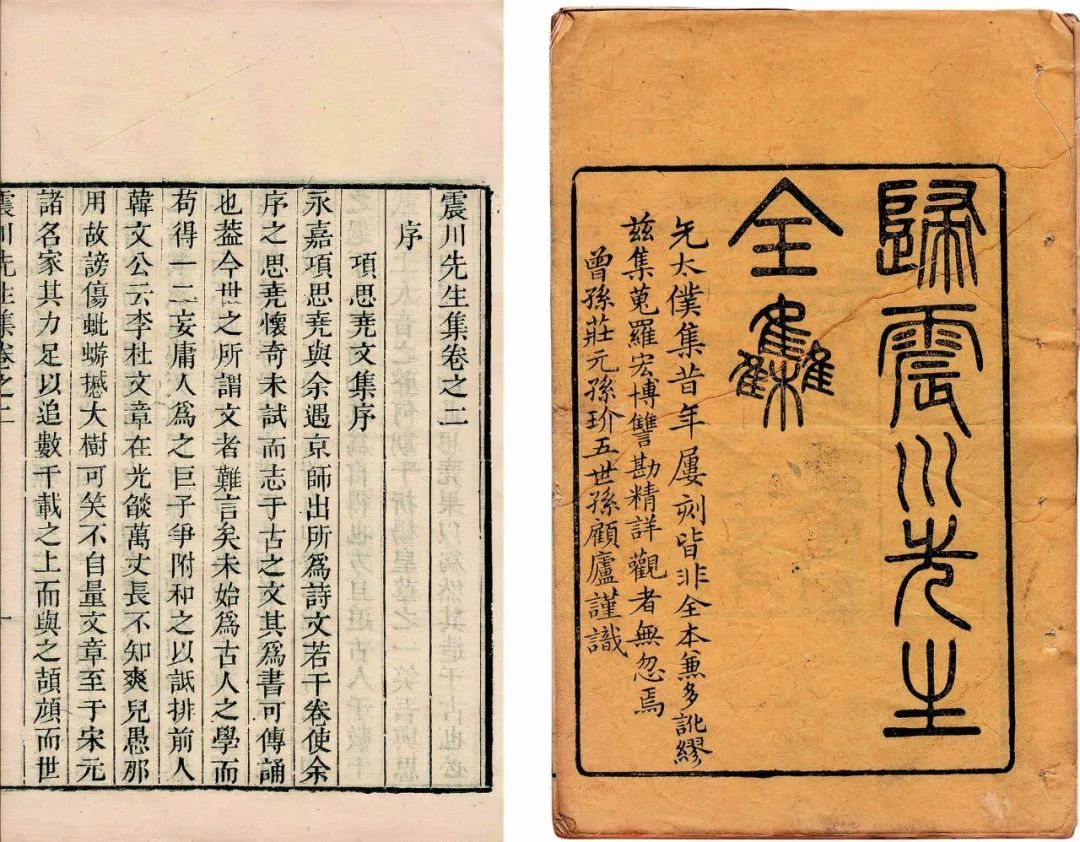 歸震川先生
全集
先太僕集昔年屢刻皆非全本兼多訛繆
茲集蒐羅宏博讐勘精詳觀者無忽焉
曾孫莊元孫玠五世孫顧廬謹識
震川先生集卷之二
序
項思堯文集序
永嘉項思堯與余遇京師出所爲詩文若干卷使余
序之思堯懷奇未試而志于古之文其爲書可傳誦
也蓋今世之所謂文者難言矣未始爲古人之學而
苟得一二妄庸人爲之巨子爭附和之以詆排前人
韓文公云李杜文章在光燄萬丈長不知羣兒愚那
用故謗傷蚍蜉撼大樹可笑不自量文章至于宋元
諸名家其力足以追數千載之上而與之頡頏而世
震川先生集卷之二